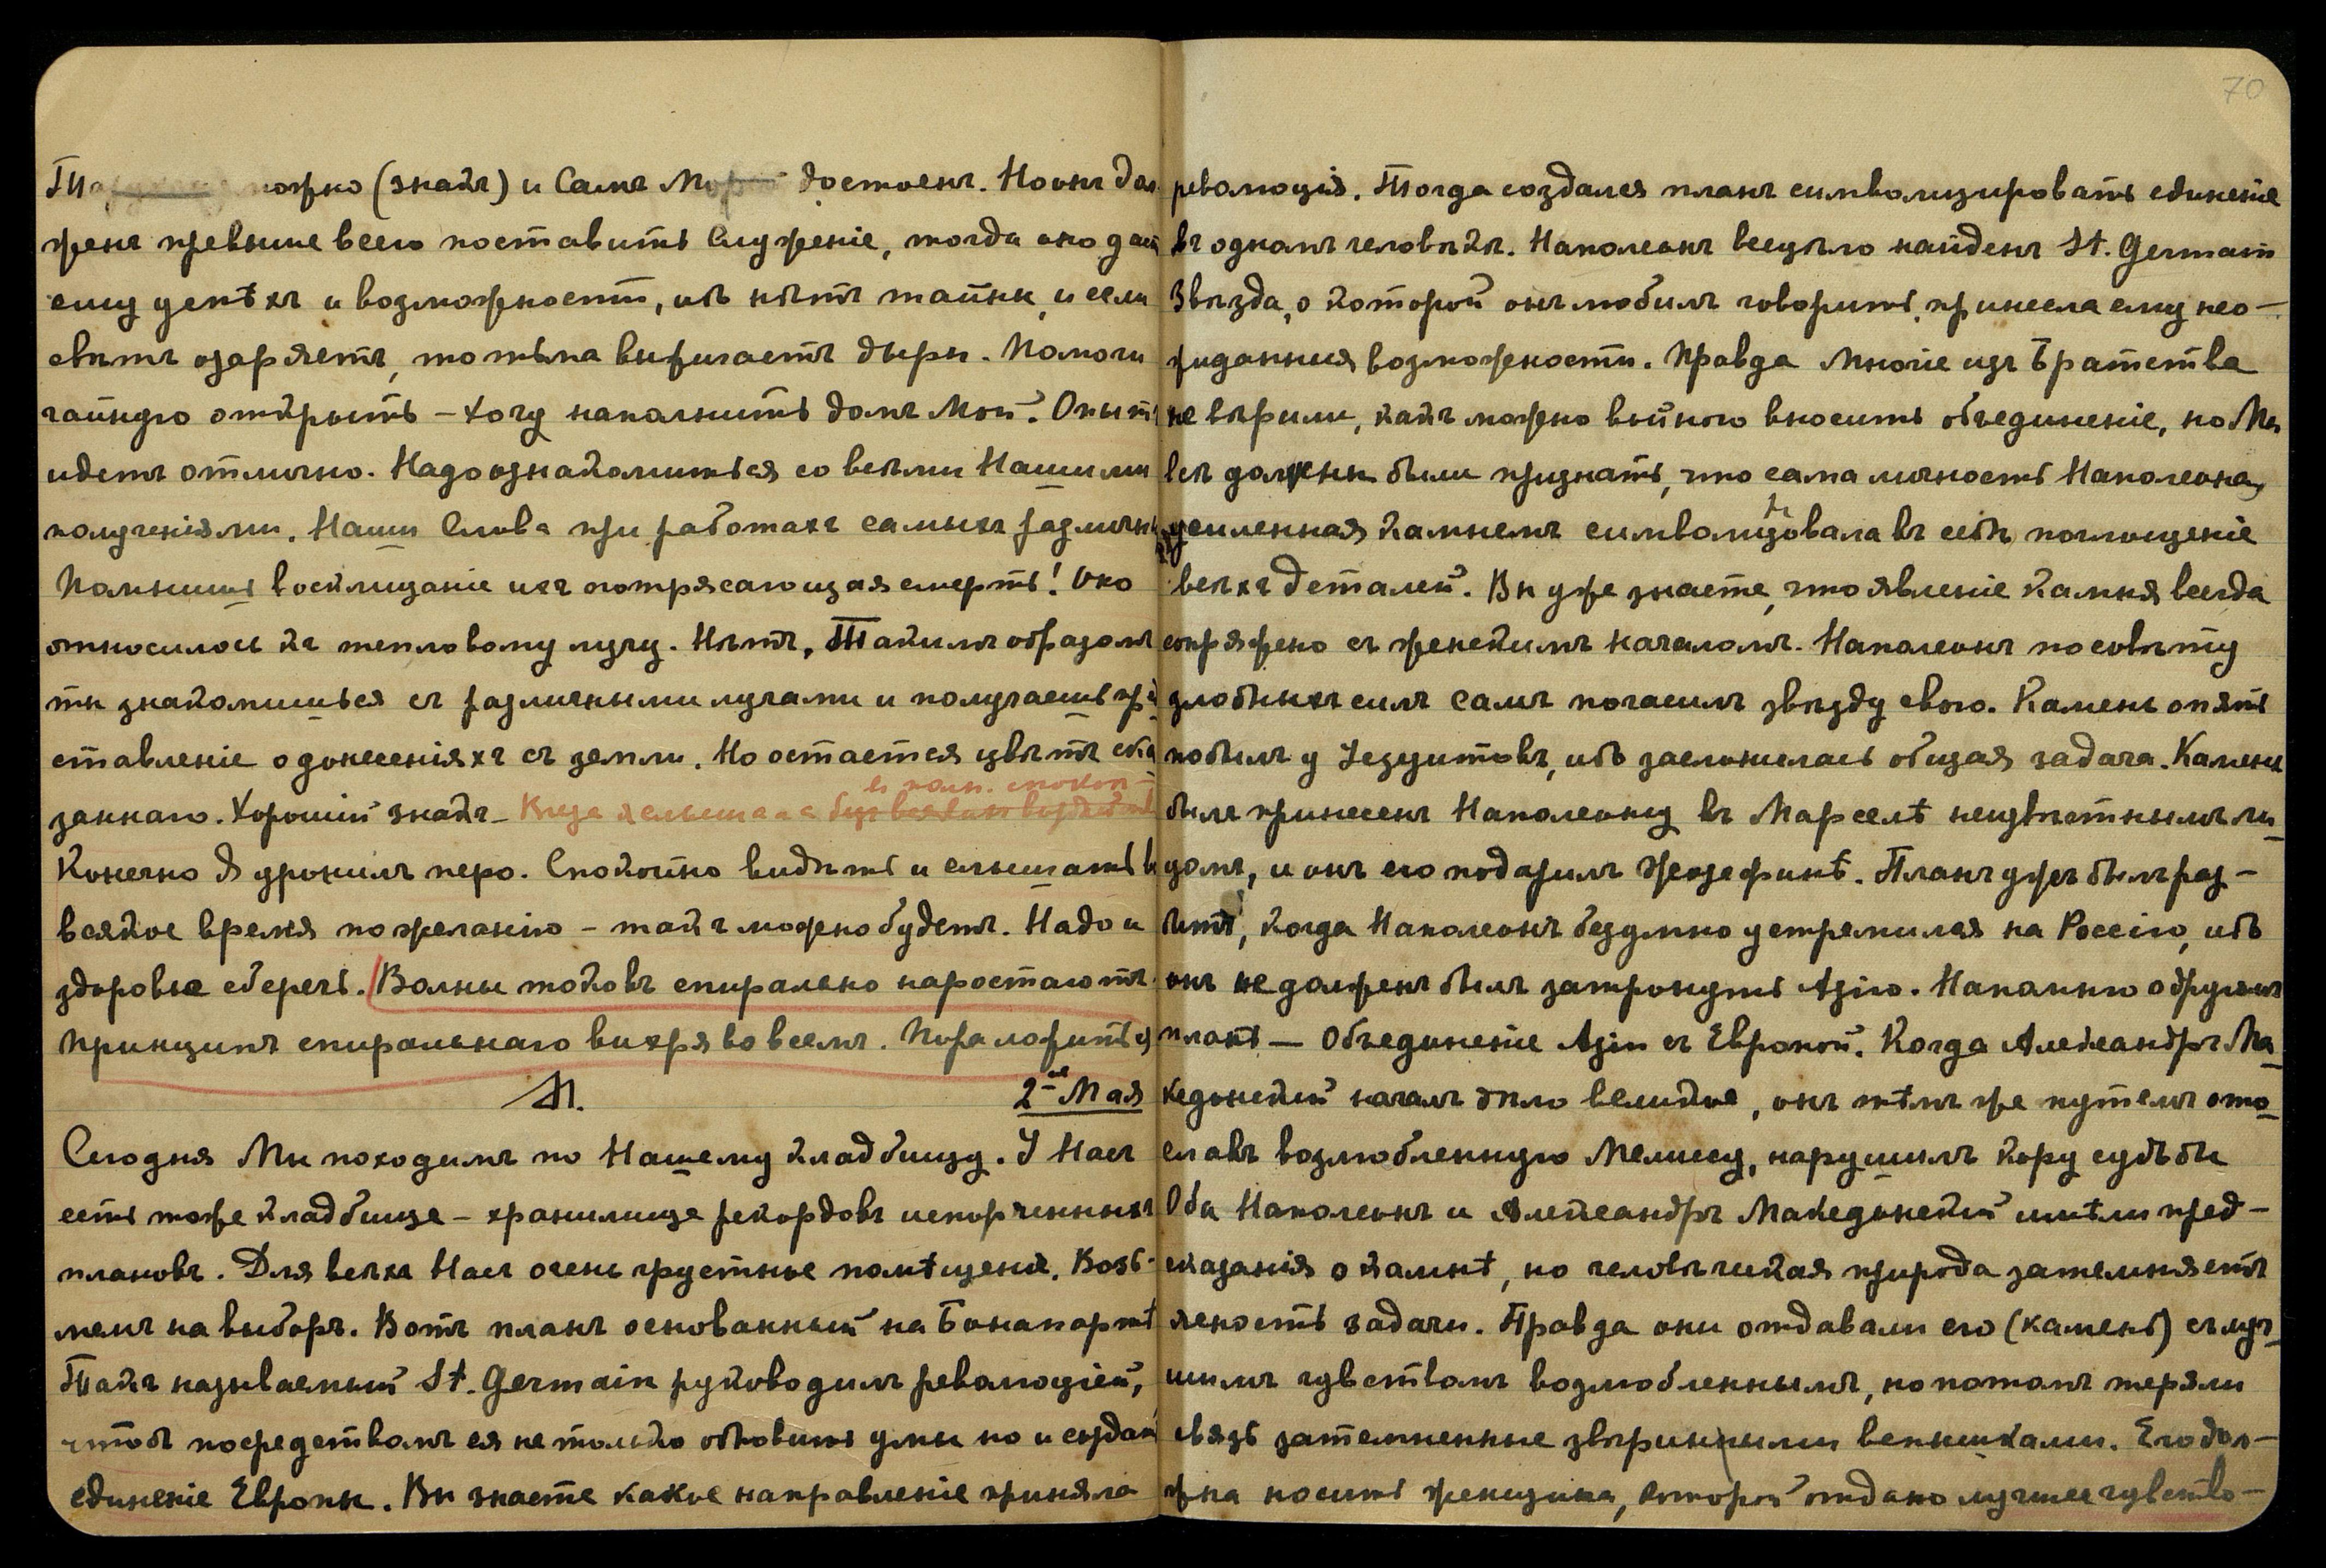 можно (знакъ) и Самъ достоенъ. Но онъ дол
женъ превыше всего поставить Служеніе, тогда оно дастъ
ему успѣхъ и возможности, ибо нѣтъ тайны, и если
свѣтъ озаряетъ, то тьма выжигаетъ дыры. Помоги
чайную открыть – хочу наполнить домъ Мой. Опытъ
идетъ отлично. Надо ознакомиться со всѣми Нашими
получніями. Наши Слова при работахъ самыхъ различны
Помнишь восклицаніе ихъ потрясающая смерть! Оно
относилось къ тепловому лучу. Нѣтъ, Такимъ образомъ
ты знакомишься съ различными лучами и получаешь пред
ставленіе о донесеніяхъ съ земли. Но остается цвѣтъ ска
заннаго. Хорошій знакъ –
Конечно Я уронилъ перо. Спокойно видѣть и слышать во
всякое время по желанію – такъ можно будетъ. Надо и
здоровье сберечь. Волны токовъ спирально наростаютъ.
Принципъ спиральнаго вихря во всемъ. Пора ложиться
М. 2-ое Мая
Сегодня Мы походимъ по Нашему кладбищу. У Насъ
есть тоже кладбище – хранилище рекордовъ испорченныхъ
плановъ. Для всѣхъ Насъ очень грустное помѣщеніе. Возь-
мемъ на выборъ. Вотъ планъ основанный на Бонапартѣ
Такъ называемый St. Germain руководилъ революціей,
чтобъ посредствомъ ея не только обновить умы но и создать
единеніе Европы. Вы знаете какое направленіе приняла
70
революція. Тогда создался планъ символизировать единеніе
въ одномъ человѣкѣ. Наполеонъ всецѣло найденъ St. Germain
Звѣзда, о которой онъ любилъ говорить, принесла ему нео–
жиданныя возможности. Правда Многіе изъ Братства
не вѣрили, какъ можно войною вносить объединеніе, но Мы
всѣ должны были признать, что сама личность Наполеона,
усиленная камнемъ символизовала въ себѣ поглощеніе
всѣхъ деталей. Вы уже знаете, что явленіе камня всегда
сопряжено съ женскимъ началомъ. Наполеонъ по совѣту
злобныхъ силъ самъ погасилъ звѣзду свою. Камень опять
побылъ у Іезуитовъ, ибо заслонилась общая задача. Камень
былъ принесенъ Наполеону въ Марселѣ неизвѣстнымъ ли–
цомъ, и онъ его подарилъ Жозефинѣ. Планъ уже былъ раз–
битъ, когда Наполеонъ безумно устремился на Россію, ибо
онъ не долженъ былъ затронуть Азію. Напомню о другомъ
планѣ — Объединеніе Азіи съ Европой. Когда Александръ Ма–
кедонскій началъ дѣло великое, онъ тѣмъ же путемъ ото–
славъ возлюбленную Мелиссу, нарушилъ кору судьбы
Оба Наполеонъ и Александръ Македонскій имѣли пред–
сказанія о камнѣ, но человѣческая природа затемняетъ
ясность задачи. Правда они отдавали его (камень) съ луч–
шимъ чувствомъ возлюбленнымъ, но потомъ теряли
связь затемненные звѣриными вспышками. Его дол–
жна носить женщина, которой отдано лучшее чувство–